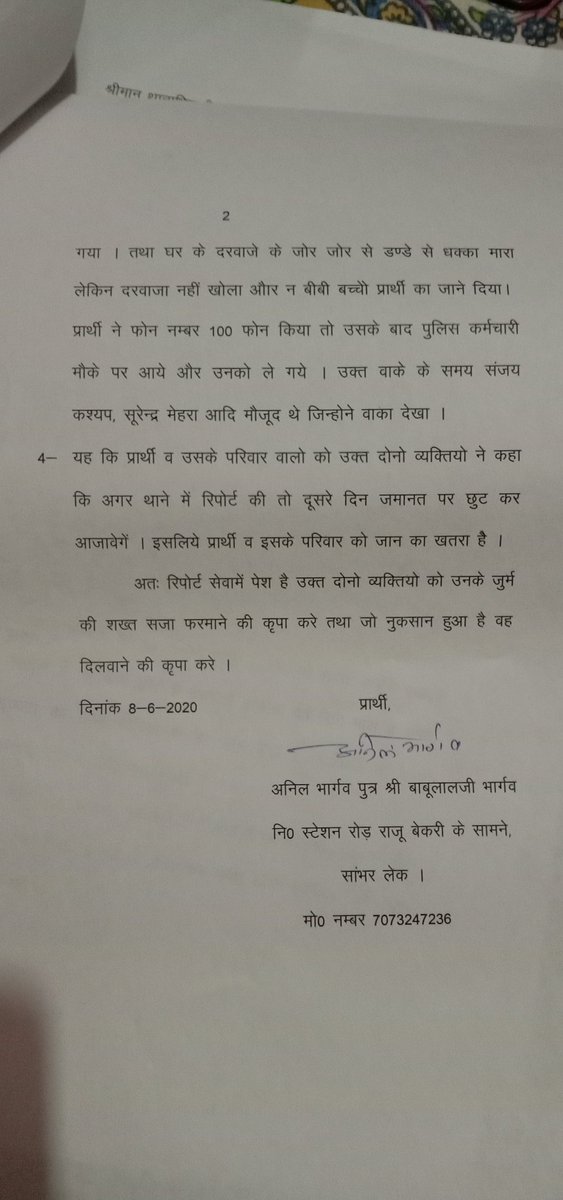 श्रीमान
2
गया । तथा घर के दरवाजे के जोर जोर से डण्डे से धक्का मारा
लेकिन दरवाजा नहीं खोला औार न बीबी बच्चोे प्रार्थी का जाने दिया।
प्रार्थी ने फोन नम्बर 100 फोन किया तो उसके बाद पुलिस कर्मचारी
मौके पर आये और उनको ले गये । उक्त वाके के समय संजय
कश्यप, सूरेन्द्र मेहरा आदि मौजूद थे जिन्होने वाका देखा ।
4– यह कि प्रार्थी व उसके परिवार वालो को उक्त दोनो व्यक्तियो ने कहा
कि अगर थाने में रिपोर्ट की तो दूसरे दिन जमानत पर छुट कर
आजावेगें । इसलिये प्रार्थी व इसके परिवार को जान का खतरा है ।
अतः रिपोर्ट सेवामें पेश है उक्त दोनो व्यक्तियो को उनके जुर्म
की शख्त सजा फरमाने की कृपा करे तथा जो नुकसान हुआ है वह
दिलवाने की कृपा करे ।
दिनांक 8–6–2020 प्रार्थी,
अनिल भार्गव
अनिल भार्गव पुत्र श्री बाबूलालजी भार्गव
नि0 स्टेशन रोड़ राजू बेकरी के सामने,
सांभर लेक ।
मो0 नम्बर 7073247236